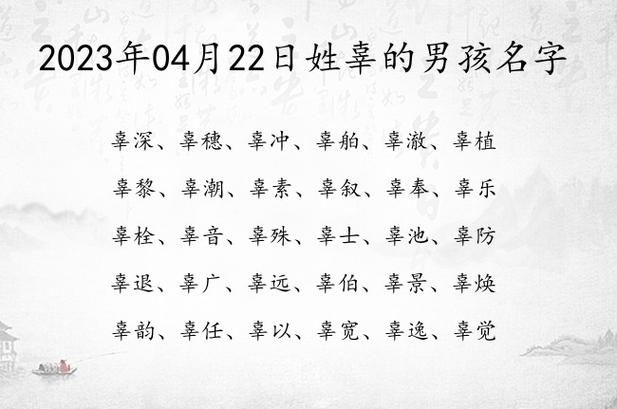 2023年04月22日姓辜的男孩名字
辜深、辜穗、辜冲、辜舶、辜澈、辜植
辜黎、辜潮、辜素、辜叙、辜奉、辜乐
辜栓、辜音、辜殊、辜士、辜池、辜防
辜退、辜广、辜远、辜伯、辜景、辜焕
辜韵、辜任、辜以、辜宽、辜逸、辜觉